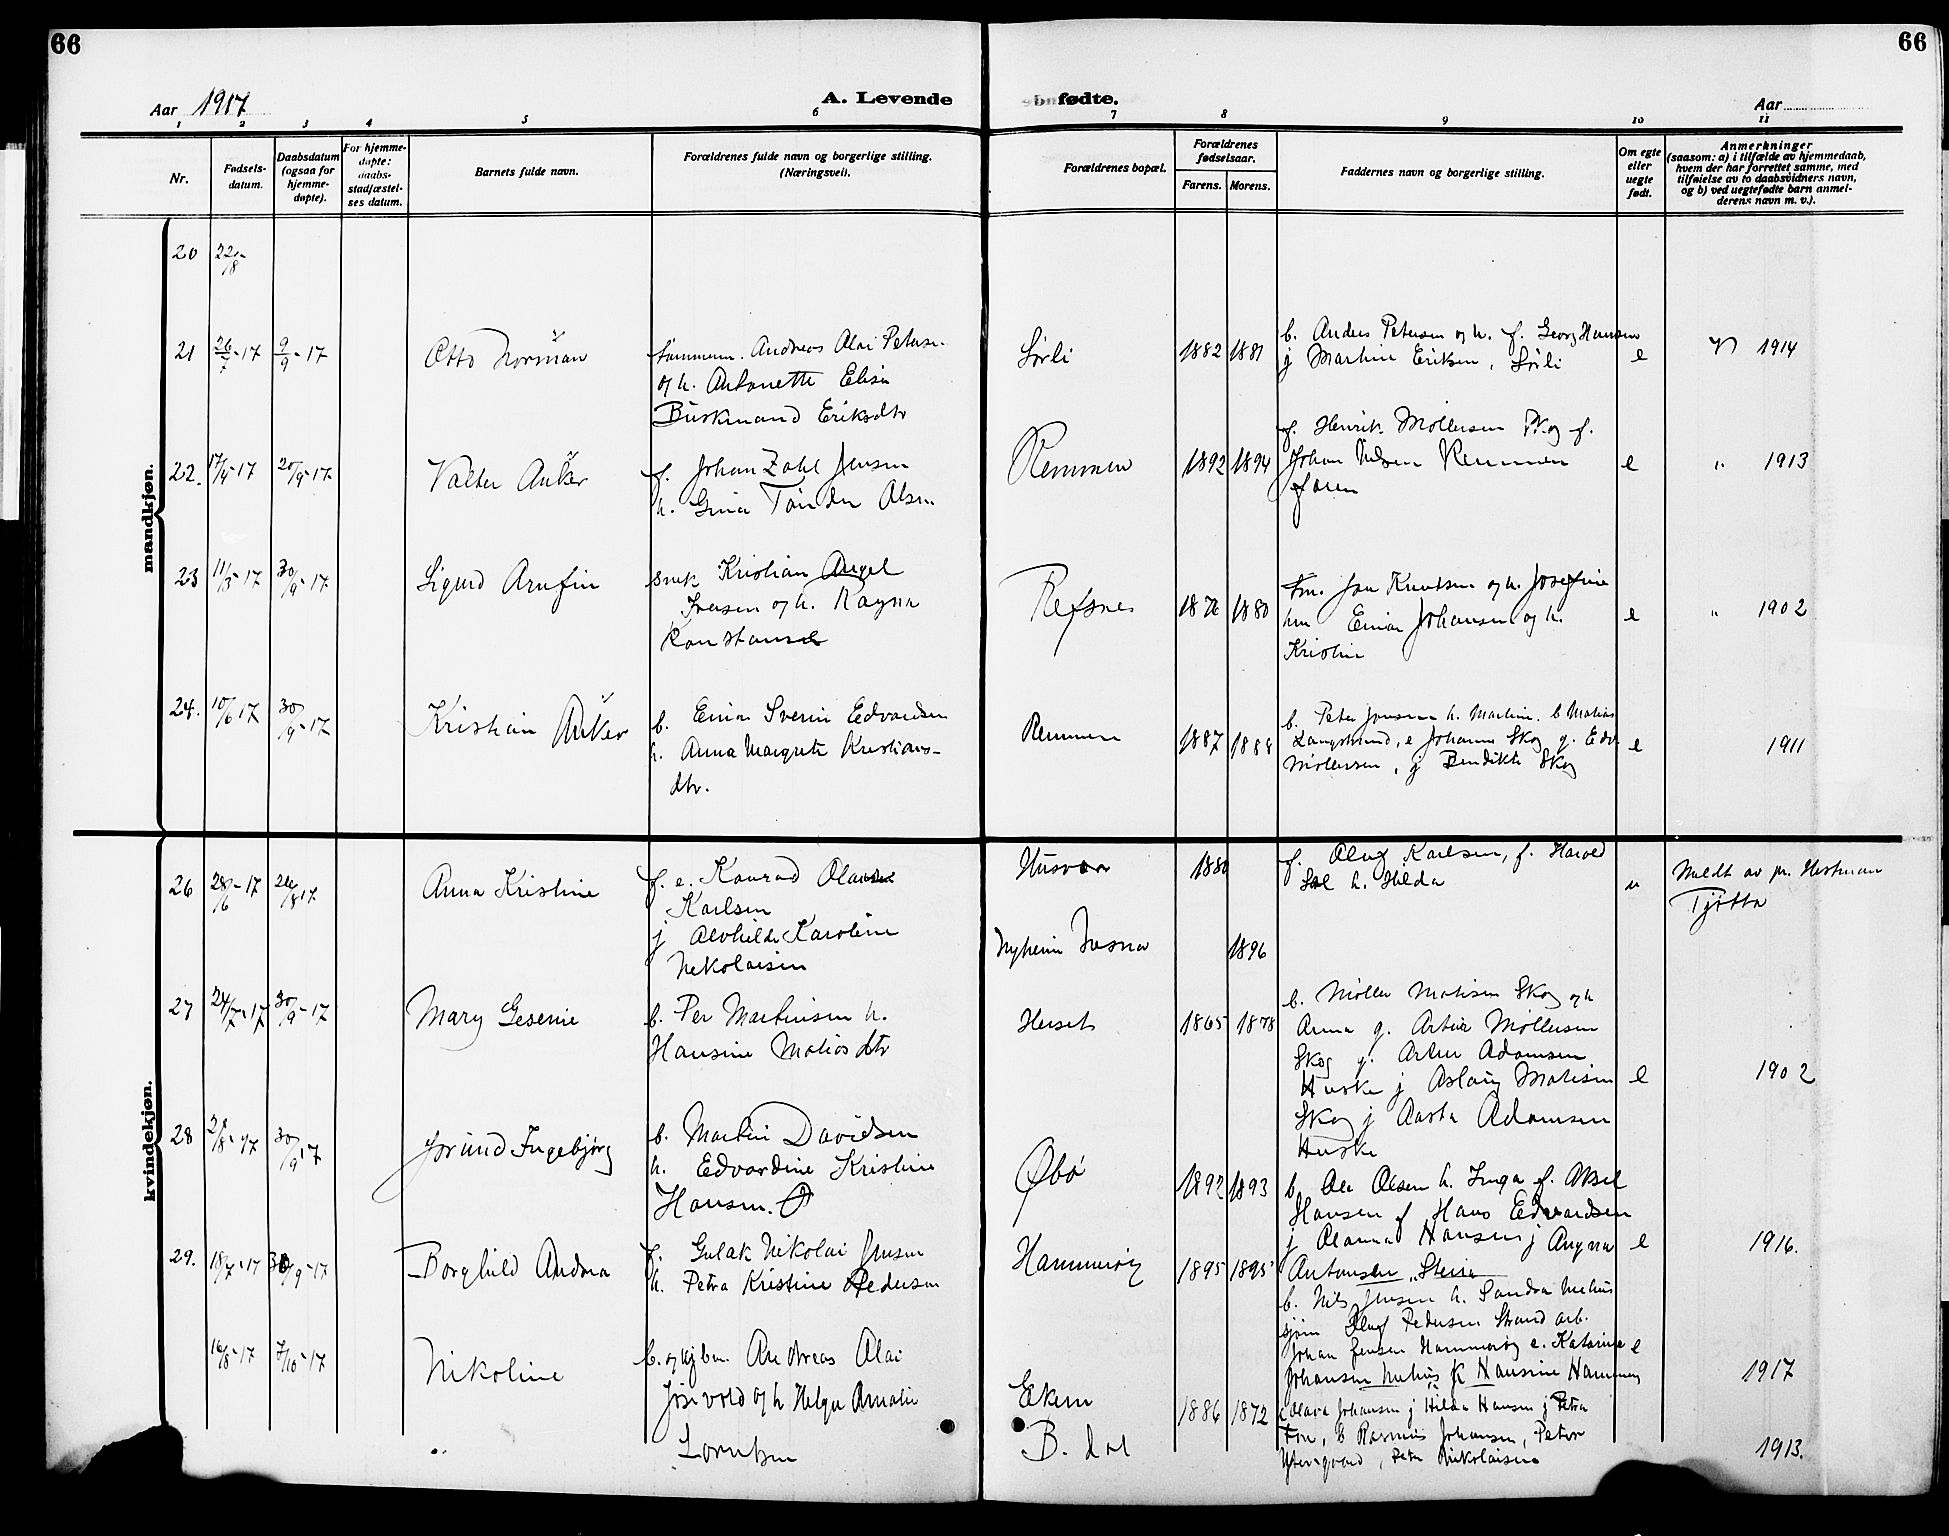 66
66
Aar 1917
A. Levende
fødte.
Aar
1 2 3 4 5 6 7 8 9 10 11
Nr.
Fødsels-
datum.
Daabsdatum
(ogsaa for
hjemme-
døpte).
For hjemme-
døpte:
daabs-
stadfæstel-
ses datum.
Barnets fulde navn.
Forældrenes fulde navn og borgerlige stilling.
(Næringsvei).
Forældrenes bopæl.
Forældrenes
fødselsaar.
Farens. Morens.
Faddernes navn og borgerlige stilling.
Om egte
eller
uegte
født.
Anmerkninger
(saasom: a) i tilfælde av hjemmedaab,
hvem der har forrettet samme, med
tilføielse av to daabsvidners navn,
og b) ved uegtefødte barn anmel-
derens navn m. v.).
mandkjøn.
20 22/8
21 9/9-17 Otto Norman
Andreas Olai Peters.
og h. Antonette Elisa
Buskmand Eriksdtr
Sørli 1882
b. Anders Petersen og h. f. Georg Hansen
j Martine Eriksen, Sørli
e
1914
22. 17/4-17 20/9-17 Valter Anker
f. Johan Zahl Jensen
h. Gina Tønder Olsen
Remmen 1892 1894
f. Henrik Møllersen Skog f.
Johan Nilsen Remmen
faren
e " 1913
23 11/5-17 30/9-17 Sigurd Arnfin
Kristian Angel
Iversen og h. Ragna
Konstanse
Refsnes 1876 1880
Jon Knutsen og h. Josefine
Einar Johansen og h.
Kristine
e " 1902
24. 10/6 17 30/9-17 Kristian Anker
b. Einar Sverin Edvardsen
h. Anna Margrete Kristians-
dtr.
Remmen 1887 1888
b. Peter Jensen h. Martine. b Matias
Langstrand, e Johanna Skog g. Edv.
Møllersen, j Bendikte Skog
e 1911
kvindekjøn.
26 28/6-17 26/8 17 Anna Kristine
f. e. Konrad Olausen
Karlsen
j Alvhilde Karoline
Nikolaisen
Husvær 1880
Nyheim 1896
f. Oluf Karlsen, f. Harold
h. Hilda
u
Meldt av pr. Hestman
Tjøtta
27 24/7-17 30/9-17 Mary Gesenie
b. Per Martinsen h.
Hansine Matiasdtr
Herset 1865 1878
b. Møller Matisen Skog og h
Anna g. Artur Møllersen
Skog g. Artur Adamsen
Huske j Aslaug Matisen
Skog j Aasta Adamsen
Huske
e 1902
28 30/9 17 Jorund Ingebjørg
b. Martin Davidsen
h. Edvardine Kristine
Hansen.
Øbø 1892 1893
b. Ole Olsen h. Inga f. Aksel
Hansen f Hans Edvardsen
j Olanna Hansen j Augna
Antonsen
e 1916.
29. 18/7-17 30/9-17 Borghild Andrea
f. Gulak Nikolai Jensen
h. Petra Kristine Pedersen
Hammerøy 1895 1895
b. Nils Jensen h. Sandra
Oluf Pedersen Strand arb.
Johan Jensen Hammerøy e. Katarine
Johansen j Hansine Hammerøy
e 1917
16/8-17 7/10-17 Nikoline
Andreas Olai
og h Helga Amalie
Lorntsen
B. dal
1886 1872
Olava Johansen j Hilda Hansen j Petra
b Rasmus Johansen, Peter
Petr Nikolaisen
1913.